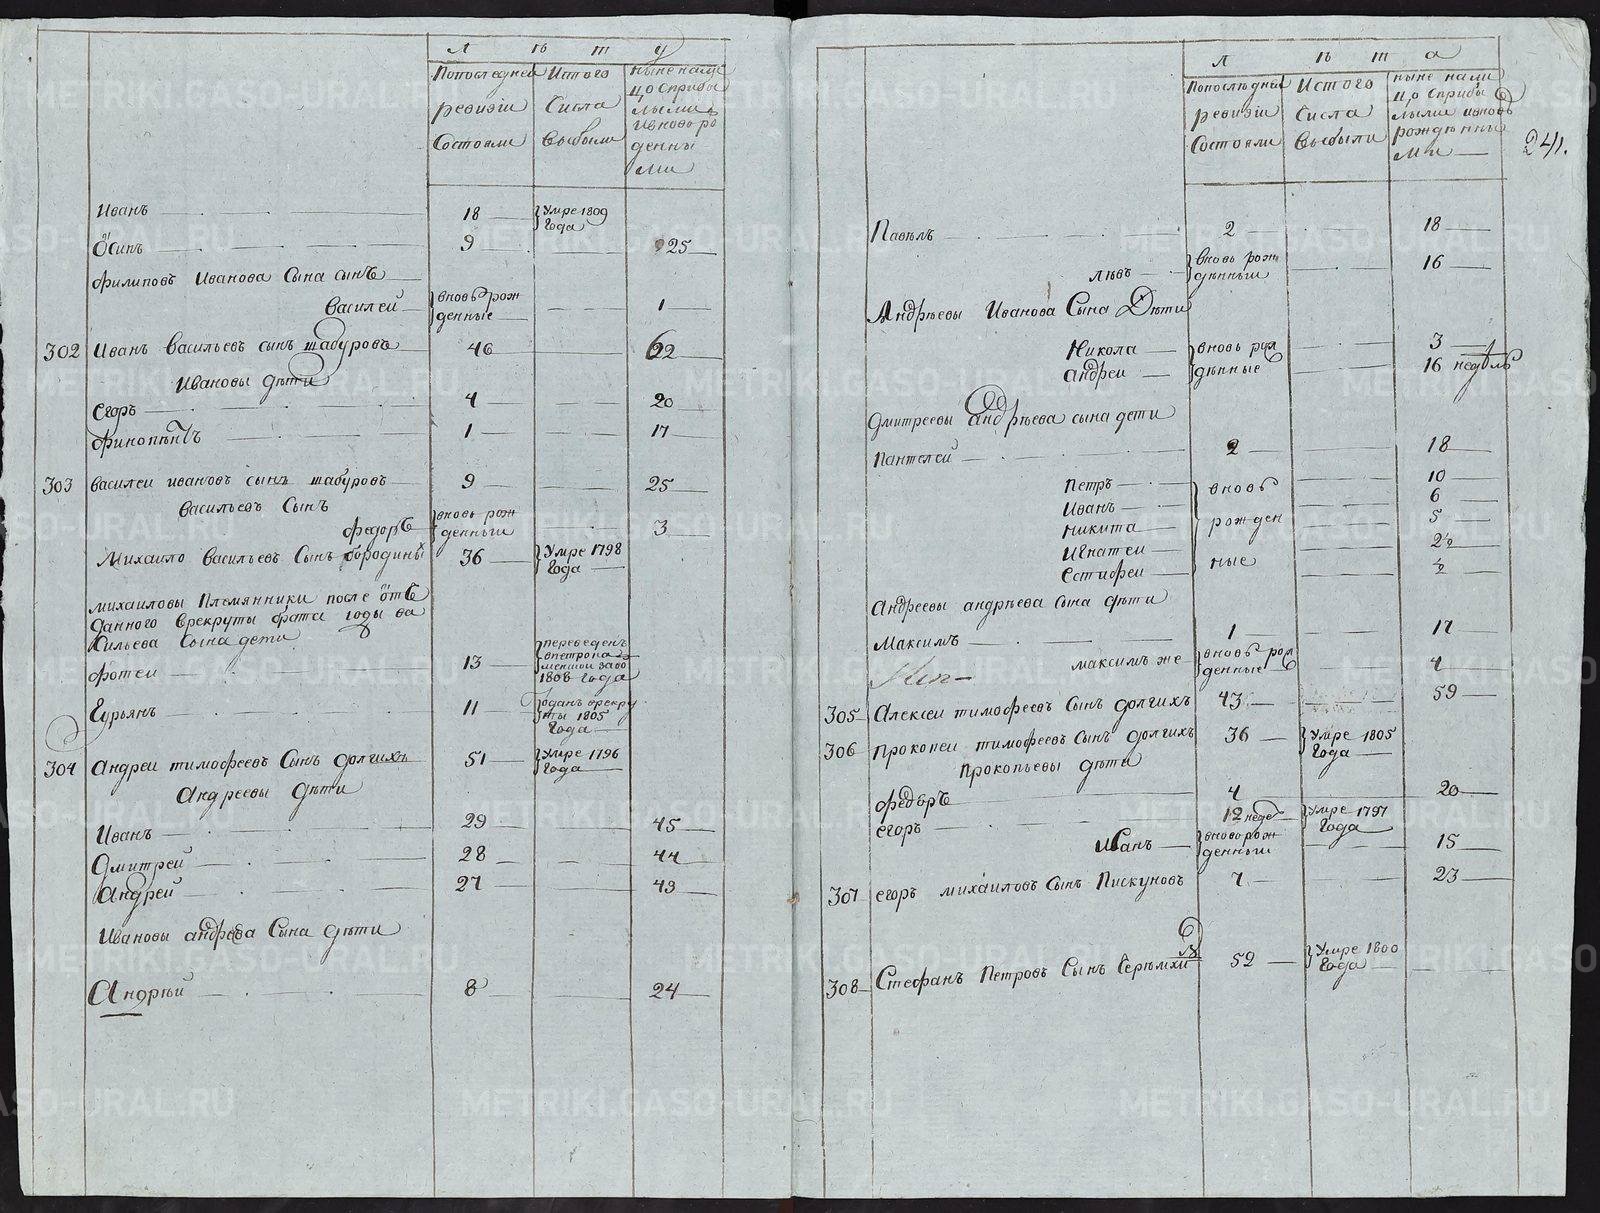 Л ѣ т у
Попоследней ревизіи состояли
Истого Сисла выбыли
ныне нали цо Сприбы лыми ивново ро денны ми
Иванъ 18 Умре 1809 года
Осипъ 9 25
Филиповъ Иванова Сына сынъ
Василей вновь рож денные 1
302 Иванъ Васильевъ сынъ шабуровъ 46 62
Ивановы дѣти
Егоръ 4 20
1 17
303 василеи ивановъ сынъ шабуровъ 9 25
васильевъ Сынъ
федоръ вновь рож денныи 3
Михаило васильевъ Сынъ бородинъ 36 Умре 1798 года
михаиловы Племянники после отъ
данного врекруты брата годы ва
сильева Сына дети
фотеи 13 переведенъ 1808 года
Гурьянъ 11 отданъ врекру ты 1805 года
304 Андреи тимофеевъ Сынъ долгихъ 51 Умре 1796 года
Андреевы дѣти
Иванъ 29 45
Дмитреи 28 44
Андреи 27 43
Ивановы андреева Сына дѣти
Андрѣи 8 24
Л ѣ т а
Попослѣдней ревизіи состояли
Истого Сисла выбыли
ныне нали цо Сприбы лыми ивновь рожденны ми
241.
Павелъ 2 18
львъ вновь рож денныи 16
Андрѣевы Иванова Сына Дѣти
Никола вновь рож 3
андреи денные 16 недѣль
Дмитреевы андрѣева сына дети
Пантелеи 2 18
Петръ вновь 10
Иванъ 6
никита рожден 5
игнатеи 2½
Естифеи ные ½
Андреевы андрѣева Сына дѣти
Максимъ 1 17
максимъ же вновь рож денные 4
305 Алексеи тимофеевъ Сынъ долгихъ 43 59
306 прокопеи тимофеевъ Сынъ долгихъ 36 Умре 1805 года
Прокопьевы дѣти
федоръ 4 20
егоръ 12 неде Умре 1797 года
Иванъ вново рож денныи 15
307 егоръ михаиловъ Сынъ Пискуновъ 7 23
308 Стефанъ Петровъ Сынъ 52 Умре 1800 года
METRIKI.GASO-URAL.RU